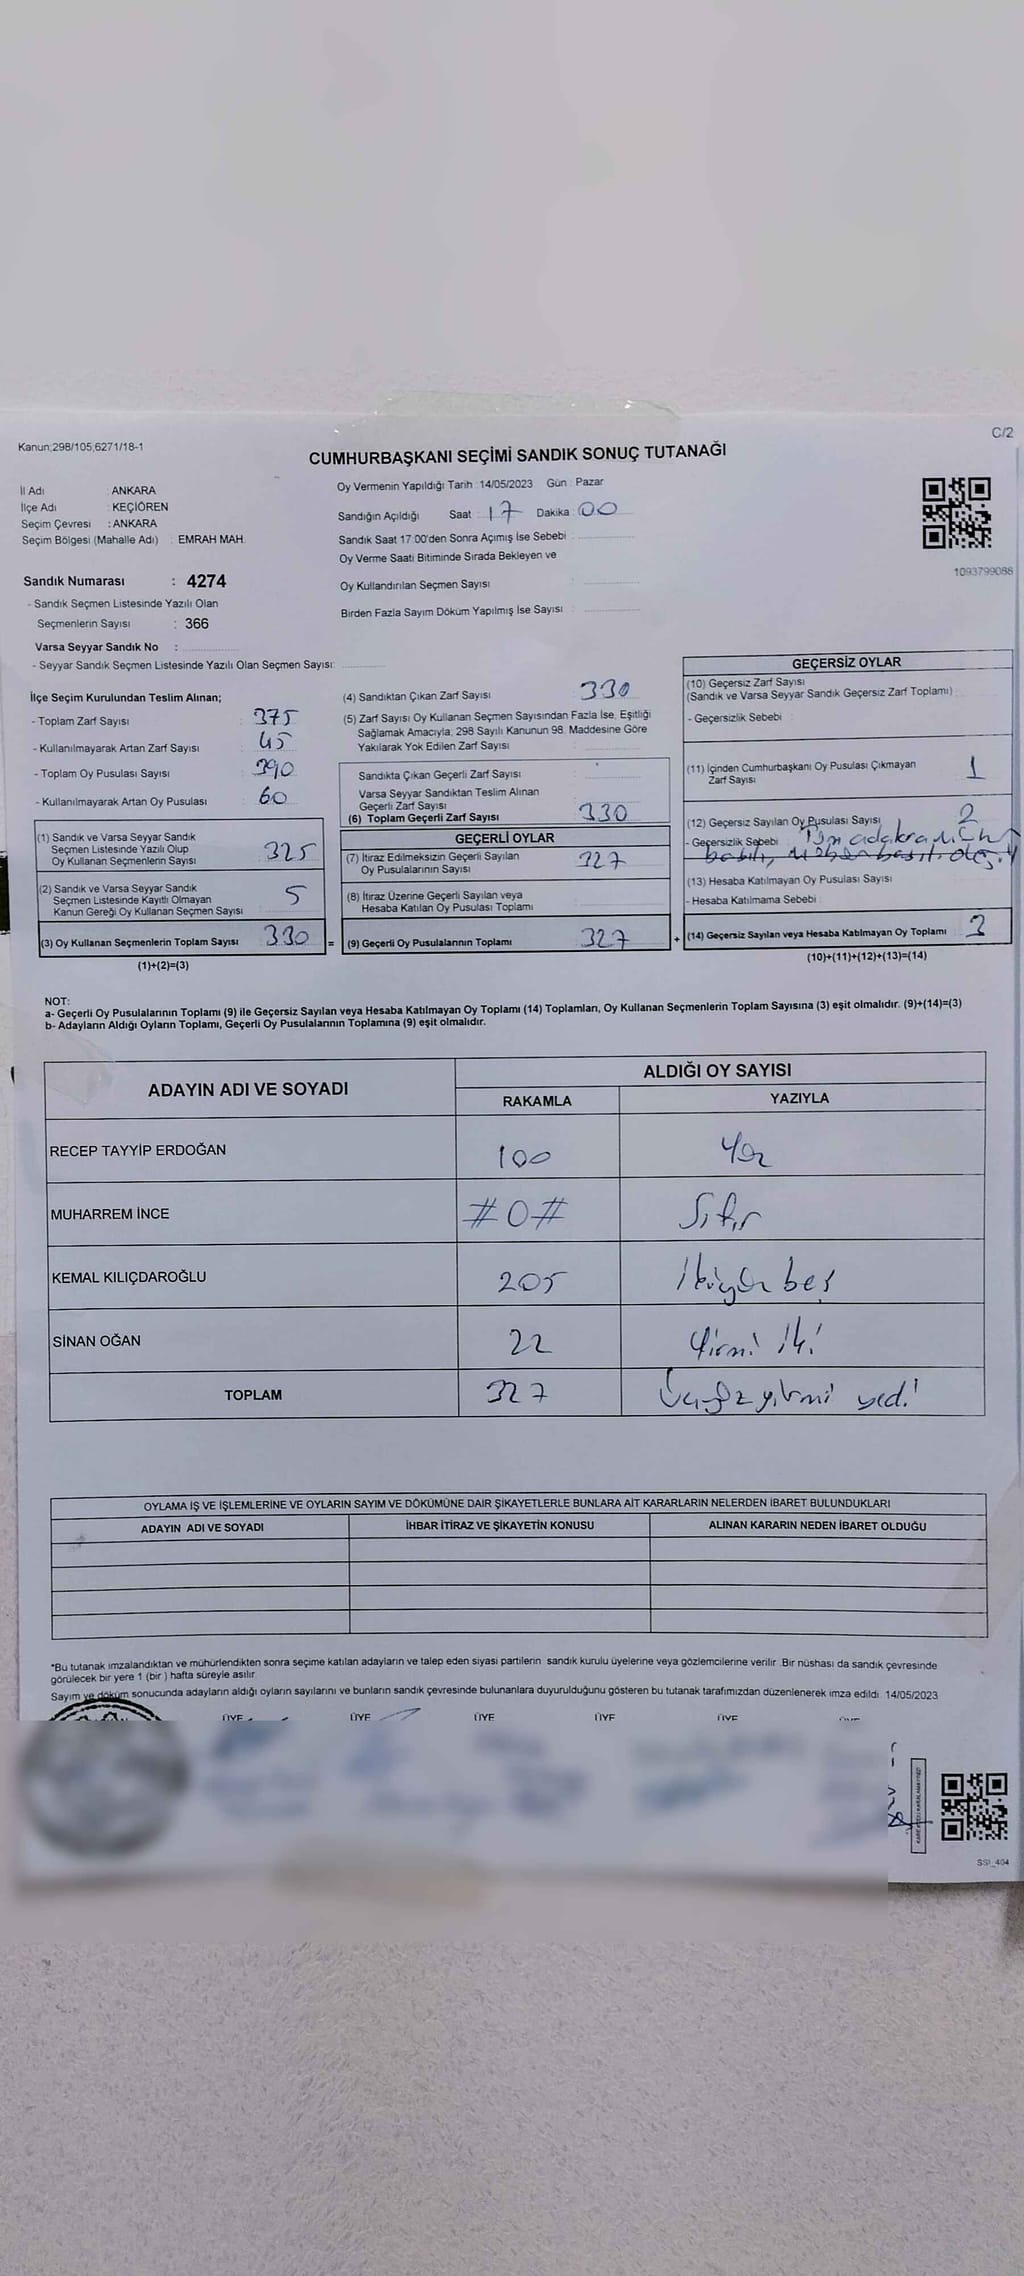 Kanun;298/105;6271/18-1
C/2
CUMHURBAŞKANI SEÇİMİ SANDIK SONUÇ TUTANAĞI
İl Adı : ANKARA
İlçe Adı : KEÇİÖREN
Seçim Çevresi : ANKARA
Seçim Bölgesi (Mahalle Adı) : EMRAH MAH.
Oy Vermenin Yapıldığı Tarih : 14/05/2023 Gün : Pazar
Sandığın Açıldığı Saat : 17 Dakika : 00
Sandık Saat 17:00'den Sonra Açımış İse Sebebi :
Oy Verme Saati Bitiminde Sırada Bekleyen ve
Oy Kullandırılan Seçmen Sayısı :
Birden Fazla Sayım Döküm Yapılmış İse Sayısı :
1093799088
Sandık Numarası : 4274
- Sandık Seçmen Listesinde Yazılı Olan
Seçmenlerin Sayısı : 366
Varsa Seyyar Sandık No :
- Seyyar Sandık Seçmen Listesinde Yazılı Olan Seçmen Sayısı:
İlçe Seçim Kurulundan Teslim Alınan;
- Toplam Zarf Sayısı : 375
- Kullanılmayarak Artan Zarf Sayısı : 45
- Toplam Oy Pusulası Sayısı : 390
- Kullanılmayarak Artan Oy Pusulası : 60
(1) Sandık ve Varsa Seyyar Sandık
Seçmen Listesinde Yazılı Olup
Oy Kullanan Seçmenlerin Sayısı : 325
(2) Sandık ve Varsa Seyyar Sandık
Seçmen Listesinde Kayıtlı Olmayan
Kanun Gereği Oy Kullanan Seçmen Sayısı : 5
(3) Oy Kullanan Seçmenlerin Toplam Sayısı : 330
(1)+(2)=(3)
(4) Sandıktan Çıkan Zarf Sayısı : 330
(5) Zarf Sayısı Oy Kullanan Seçmen Sayısından Fazla İse, Eşitliği
Sağlamak Amacıyla, 298 Sayılı Kanunun 98. Maddesine Göre
Yakılarak Yok Edilen Zarf Sayısı :
Sandıkta Çıkan Geçerli Zarf Sayısı :
Varsa Seyyar Sandıktan Teslim Alınan
Geçerli Zarf Sayısı :
(6) Toplam Geçerli Zarf Sayısı : 330
GEÇERLİ OYLAR
(7) İtiraz Edilmeksizin Geçerli Sayılan
Oy Pusulalarının Sayısı : 327
(8) İtiraz Üzerine Geçerli Sayılan veya
Hesaba Katılan Oy Pusulası Toplamı :
= (9) Geçerli Oy Pusulalarının Toplamı : 327
GEÇERSİZ OYLAR
(10) Geçersiz Zarf Sayısı
(Sandık ve Varsa Seyyar Sandık Geçersiz Zarf Toplamı) :
- Geçersizlik Sebebi :
(11) İçinden Cumhurbaşkanı Oy Pusulası Çıkmayan
Zarf Sayısı : 1
(12) Geçersiz Sayılan Oy Pusulası Sayısı : 2
- Geçersizlik Sebebi :
(13) Hesaba Katılmayan Oy Pusulası Sayısı :
- Hesaba Katılmama Sebebi :
+ (14) Geçersiz Sayılan veya Hesaba Katılmayan Oy Toplamı : 3
(10)+(11)+(12)+(13)=(14)
NOT:
a- Geçerli Oy Pusulalarının Toplamı (9) ile Geçersiz Sayılan veya Hesaba Katılmayan Oy Toplamı (14) Toplamları, Oy Kullanan Seçmenlerin Toplam Sayısına (3) eşit olmalıdır. (9)+(14)=(3)
b- Adayların Aldığı Oyların Toplamı, Geçerli Oy Pusulalarının Toplamına (9) eşit olmalıdır.
ADAYIN ADI VE SOYADI ALDIĞI OY SAYISI
RAKAMLA YAZIYLA
RECEP TAYYİP ERDOĞAN 100 Yüz
MUHARREM İNCE #0# Sıfır
KEMAL KILIÇDAROĞLU 205 İkiyüz beş
SİNAN OĞAN 22 Yirmi iki
TOPLAM 327 Üçyüz yirmi yedi
OYLAMA İŞ VE İŞLEMLERİNE VE OYLARIN SAYIM VE DÖKÜMÜNE DAİR ŞİKAYETLERLE BUNLARA AİT KARARLARIN NELERDEN İBARET BULUNDUKLARI
ADAYIN ADI VE SOYADI İHBAR İTİRAZ VE ŞİKAYETİN KONUSU ALINAN KARARIN NEDEN İBARET OLDUĞU
*Bu tutanak imzalandıktan ve mühürlendikten sonra seçime katılan adayların ve talep eden siyasi partilerin sandık kurulu üyelerine veya gözlemcilerine verilir. Bir nüshası da sandık çevresinde
görülecek bir yere 1 (bir ) hafta süreyle asılır.
Sayım ve döküm sonucunda adayların aldığı oyların sayılarını ve bunların sandık çevresinde bulunanlara duyurulduğunu gösteren bu tutanak tarafımızdan düzenlenerek imza edildi. 14/05/2023
ÜYE ÜYE ÜYE ÜYE ÜYE ÜYE
SSİ_404